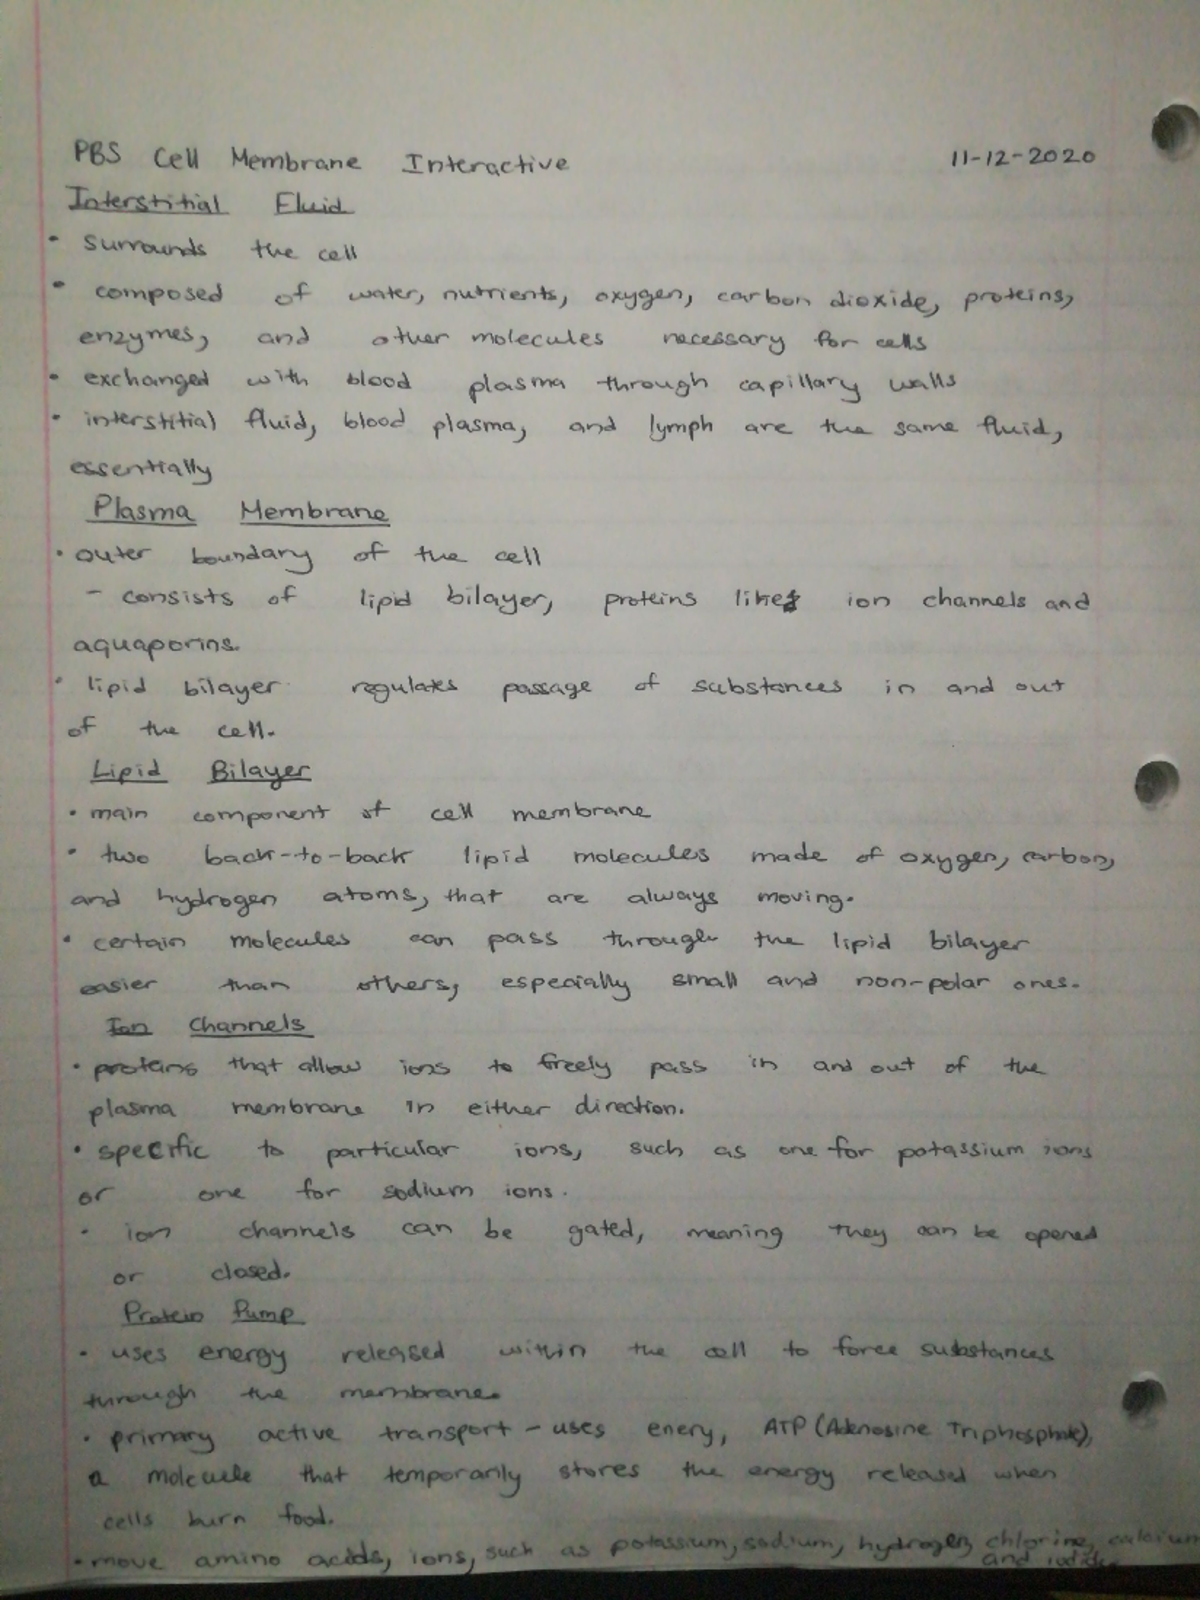 PBS Cell Membrane Interactive 11-12-2020
Interstitial Fluid
• surrounds the cell
• composed of water, nutrients, oxygen, carbon dioxide, proteins,
enzymes, and other molecules necessary for cells
• exchanged with blood plasma through capillary walls
• interstitial fluid, blood plasma, and lymph are the same fluid,
essentially
Plasma Membrane
• outer boundary of the cell
- consists of lipid bilayer, proteins like ion channels and
aquaporins.
• lipid bilayer regulates passage of substances in and out
of the cell.
Lipid Bilayer
• main component of cell membrane
• two back-to-back lipid molecules made of oxygen, carbon,
and hydrogen atoms, that are always moving.
• certain molecules can pass through the lipid bilayer
easier than others, especially small and non-polar ones.
Ion Channels
• proteins that allow ions to freely pass in and out of the
plasma membrane in either direction.
• specific to particular ions, such as one for potassium ions
or one for sodium ions.
• ion channels can be gated, meaning they can be opened
or closed.
Protein Pump
• uses energy released within the cell to force substances
through the membrane.
• primary active transport - uses enery, ATP (Adenosine Triphosphate),
a molecule that temporarily stores the energy released when
cells burn food.
• move amino acids, ions, such as potassium, sodium, hydrogen, chlorine, calcium
and iodide